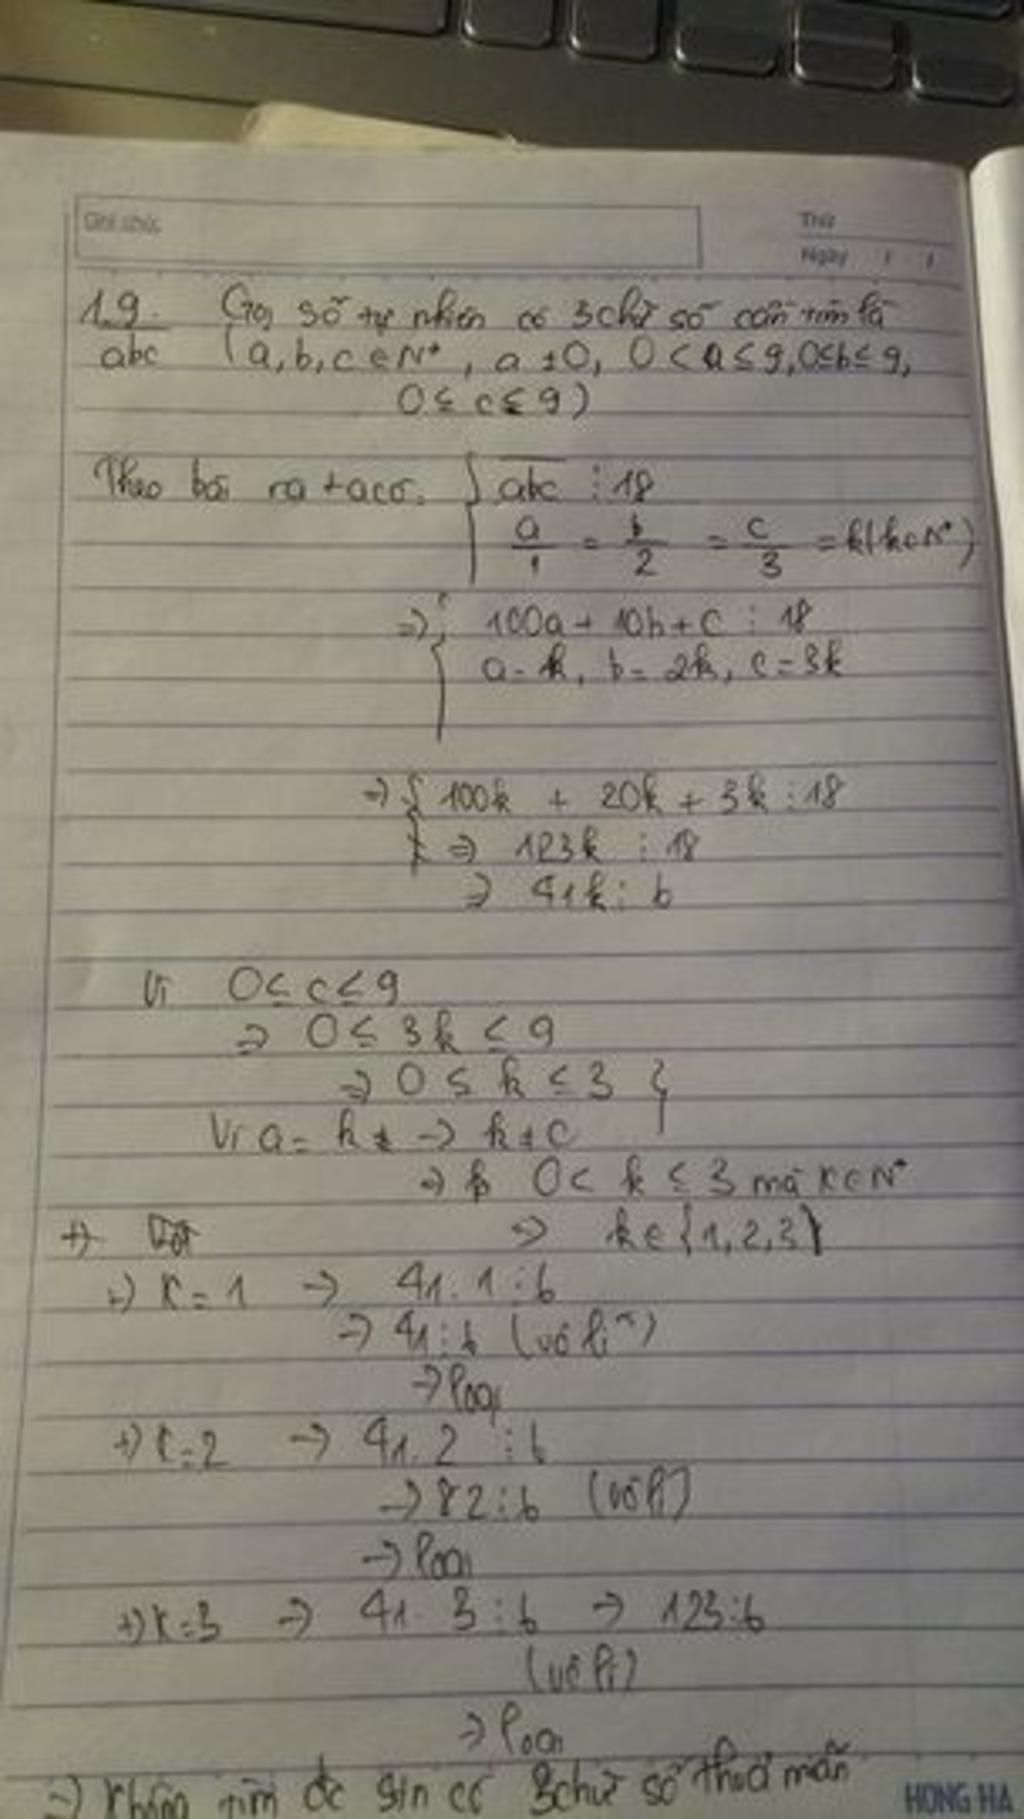 Ghi chú:
Thứ
Ngày / /
1.9. Gọi số tự nhiên có 3 chữ số cần tìm là
abc (a, b, c ∈ N*, a ≠ 0, 0 < a ≤ 9, 0 ≤ b ≤ 9,
0 ≤ c ≤ 9)
Theo bài ra ta có: { abc ⋮ 18
a/1 = b/2 = c/3 = k (k ∈ N*)
=> { 100a + 10b + c ⋮ 18
a = k, b = 2k, c = 3k
=> { 100k + 20k + 3k ⋮ 18
=> 123k ⋮ 18
=> 41k ⋮ 6
Vì 0 ≤ c ≤ 9
=> 0 ≤ 3k ≤ 9
=> 0 ≤ k ≤ 3 }
Vì a = k ≠ -> k ≠ 0
=> 0 < k ≤ 3 mà k ∈ N*
+) => k ∈ {1, 2, 3}
+) K = 1 -> 41 . 1 ⋮ 6
-> 41 ⋮ 6 (vô lí)
-> Loại
+) K = 2 -> 41 . 2 ⋮ 6
-> 82 ⋮ 6 (vô lí)
-> Loại
+) K = 3 -> 41 . 3 ⋮ 6 -> 123 ⋮ 6
(vô lí)
-> Loại
=> Không tìm đc stn có 3 chữ số thoả mãn
HONG HA